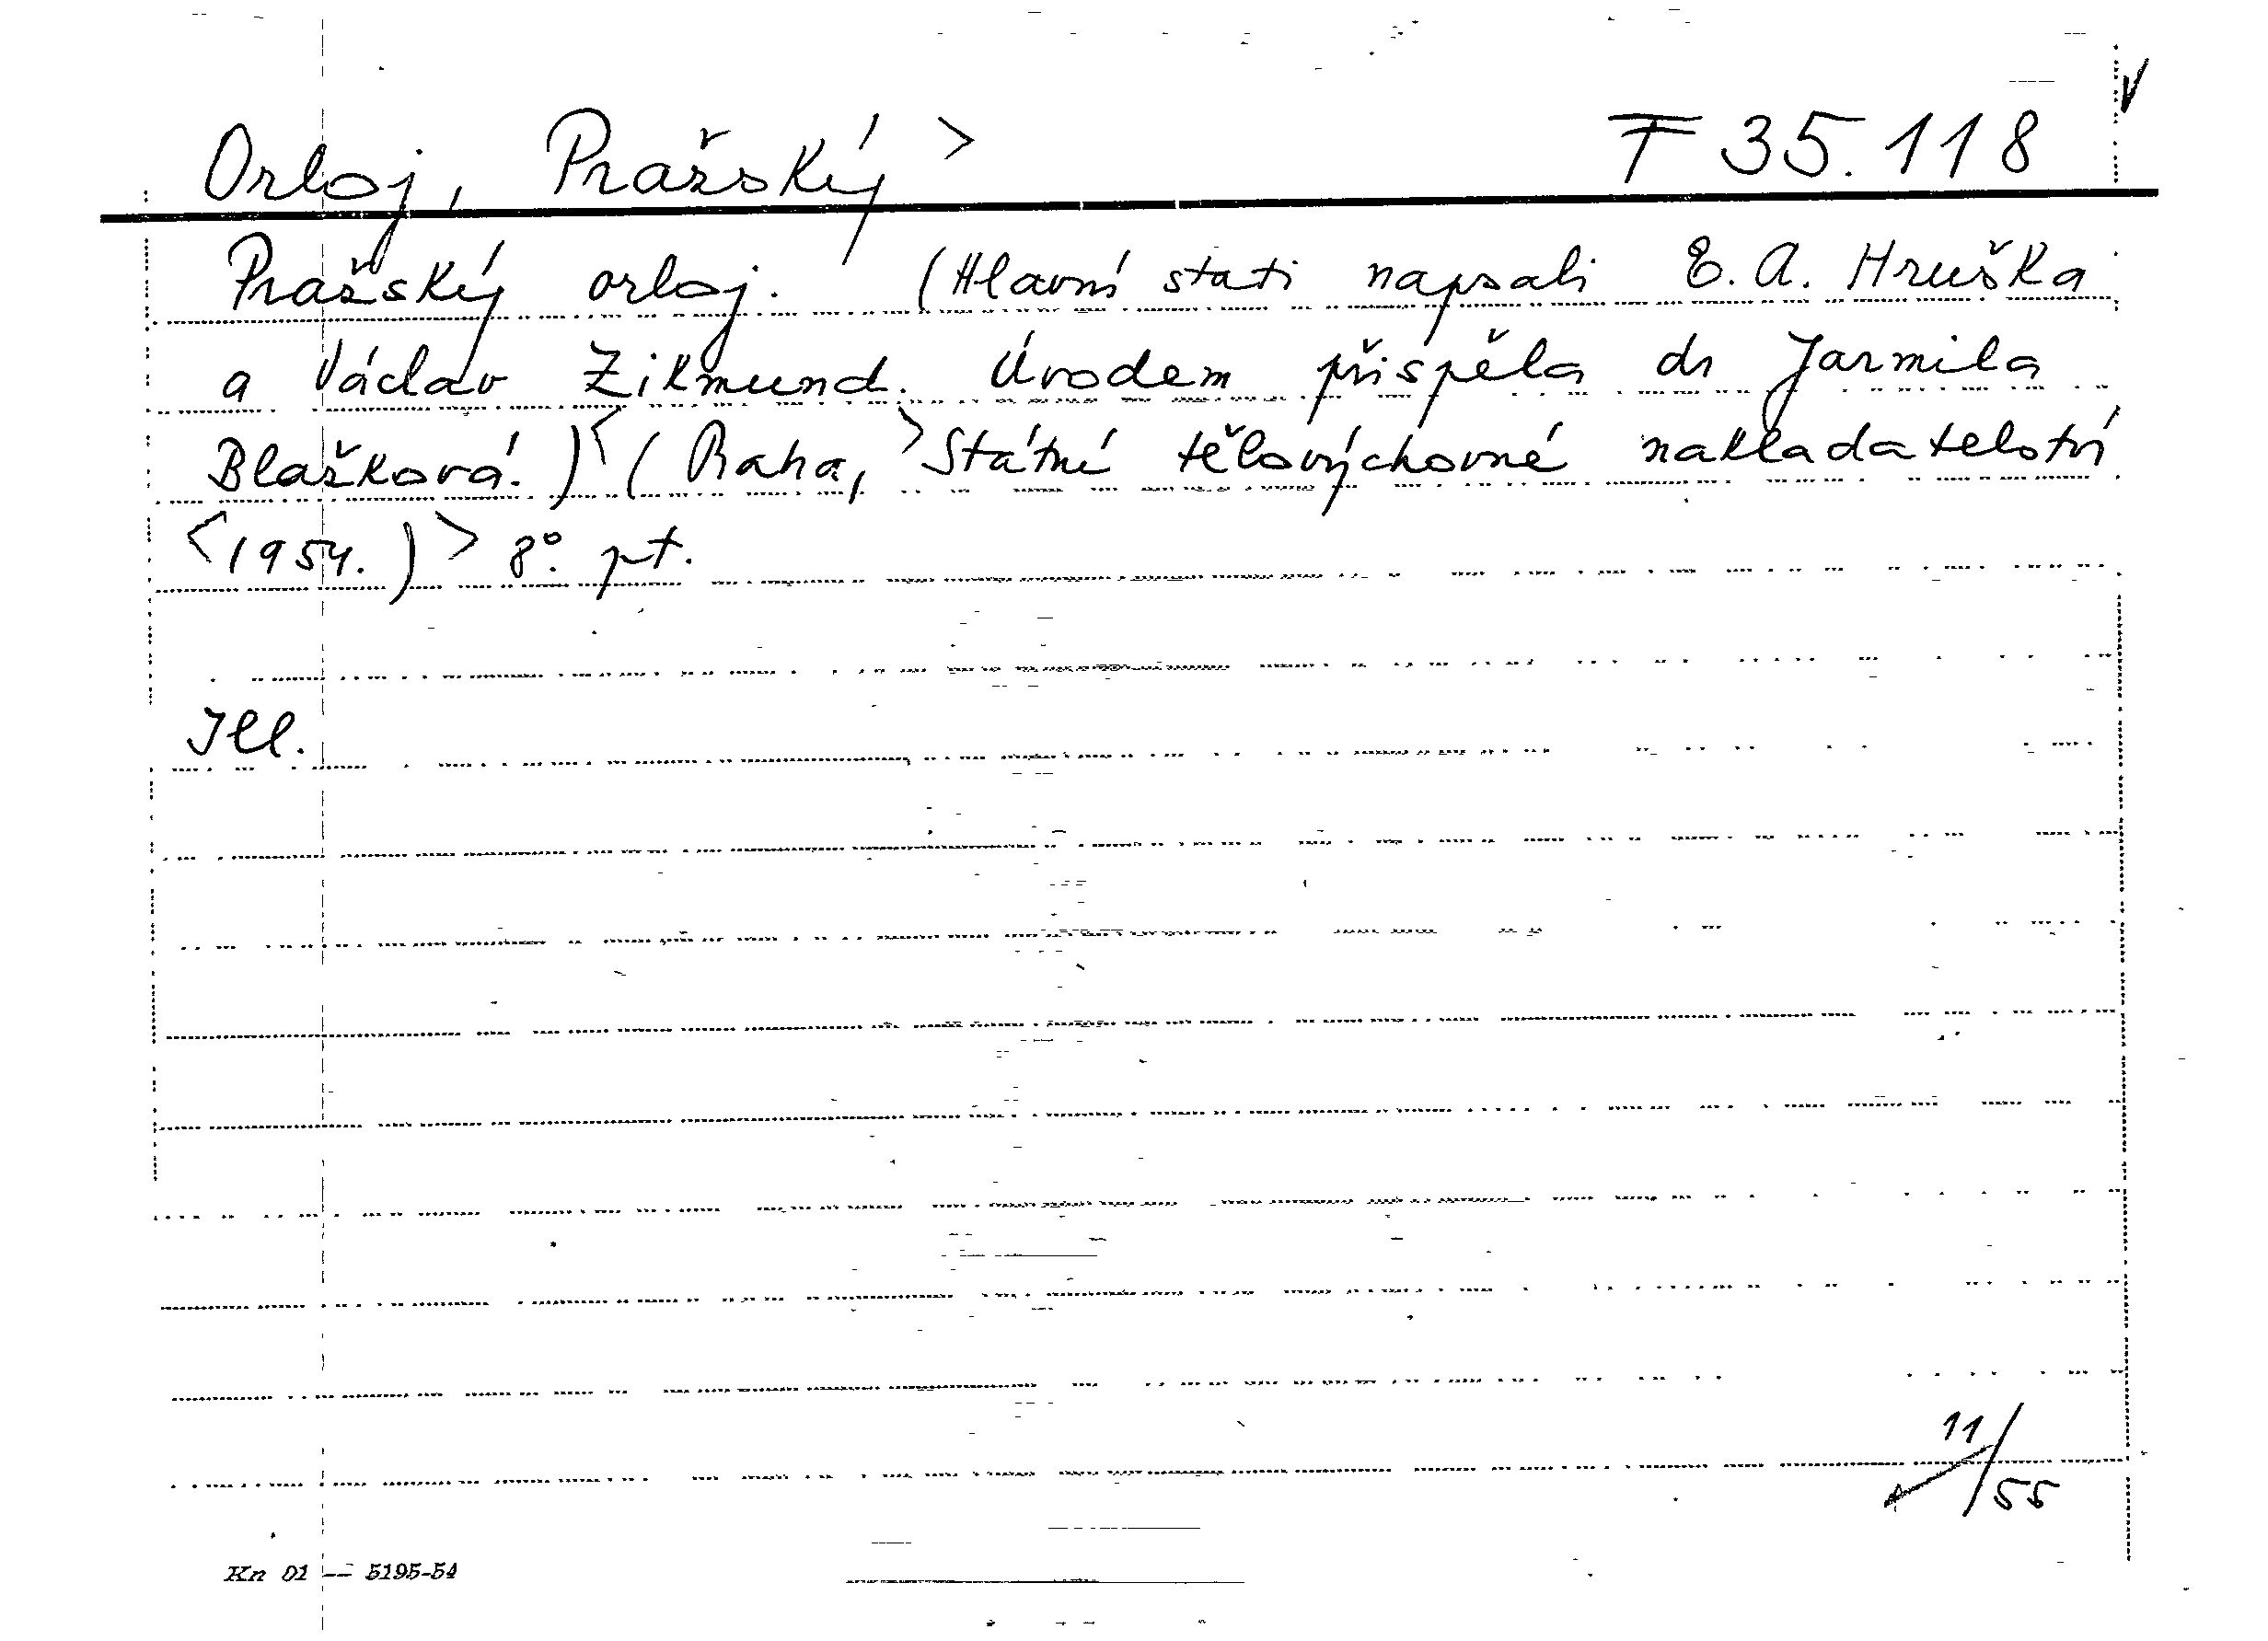 Orloj, Pražský > F 35.118
Pražský orloj. (Hlavní stati napsali E. A. Hruška
a Václav Zikmund. Úvodem přispěla dr Jarmila
Blažková.) < (Praha, > Státní tělovýchovné nakladatelství
< 1954.) > 8°. pt.
Ill.
11/55
Kn 01 — 5195-54